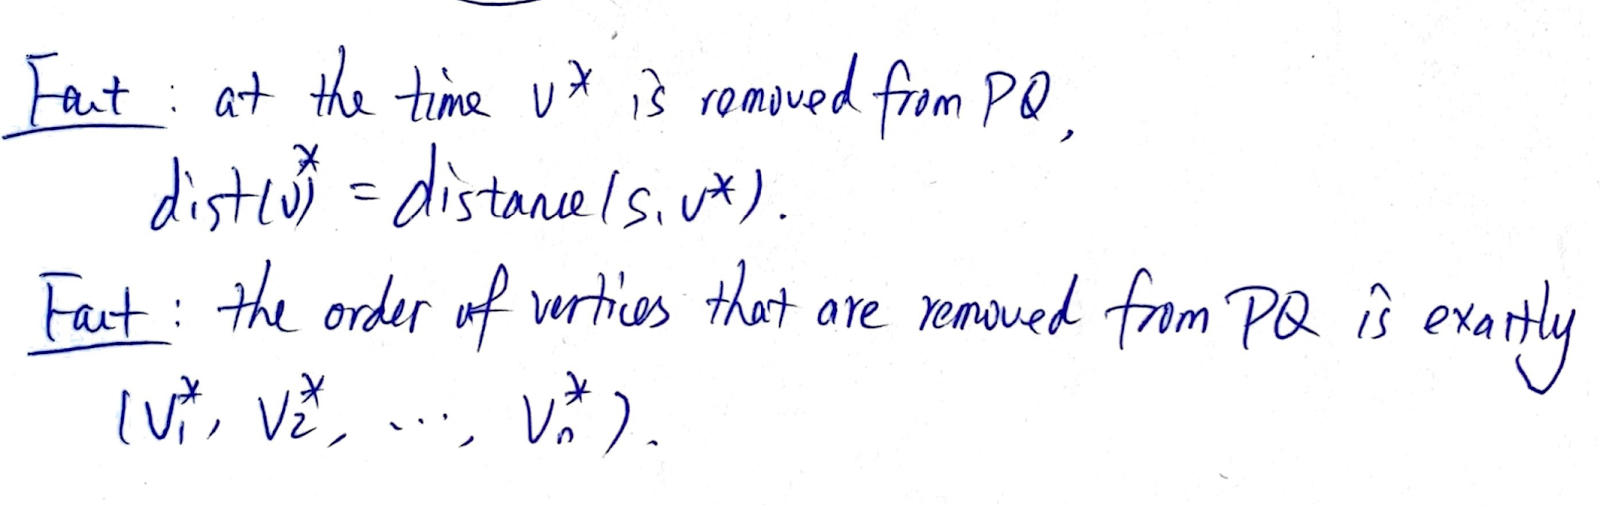 Fact: at the time v* is removed from PQ,
dist(v*) = distance(s, v*).
Fact: the order of vertices that are removed from PQ is exactly
(v₁*, v₂*, ..., vₙ*).